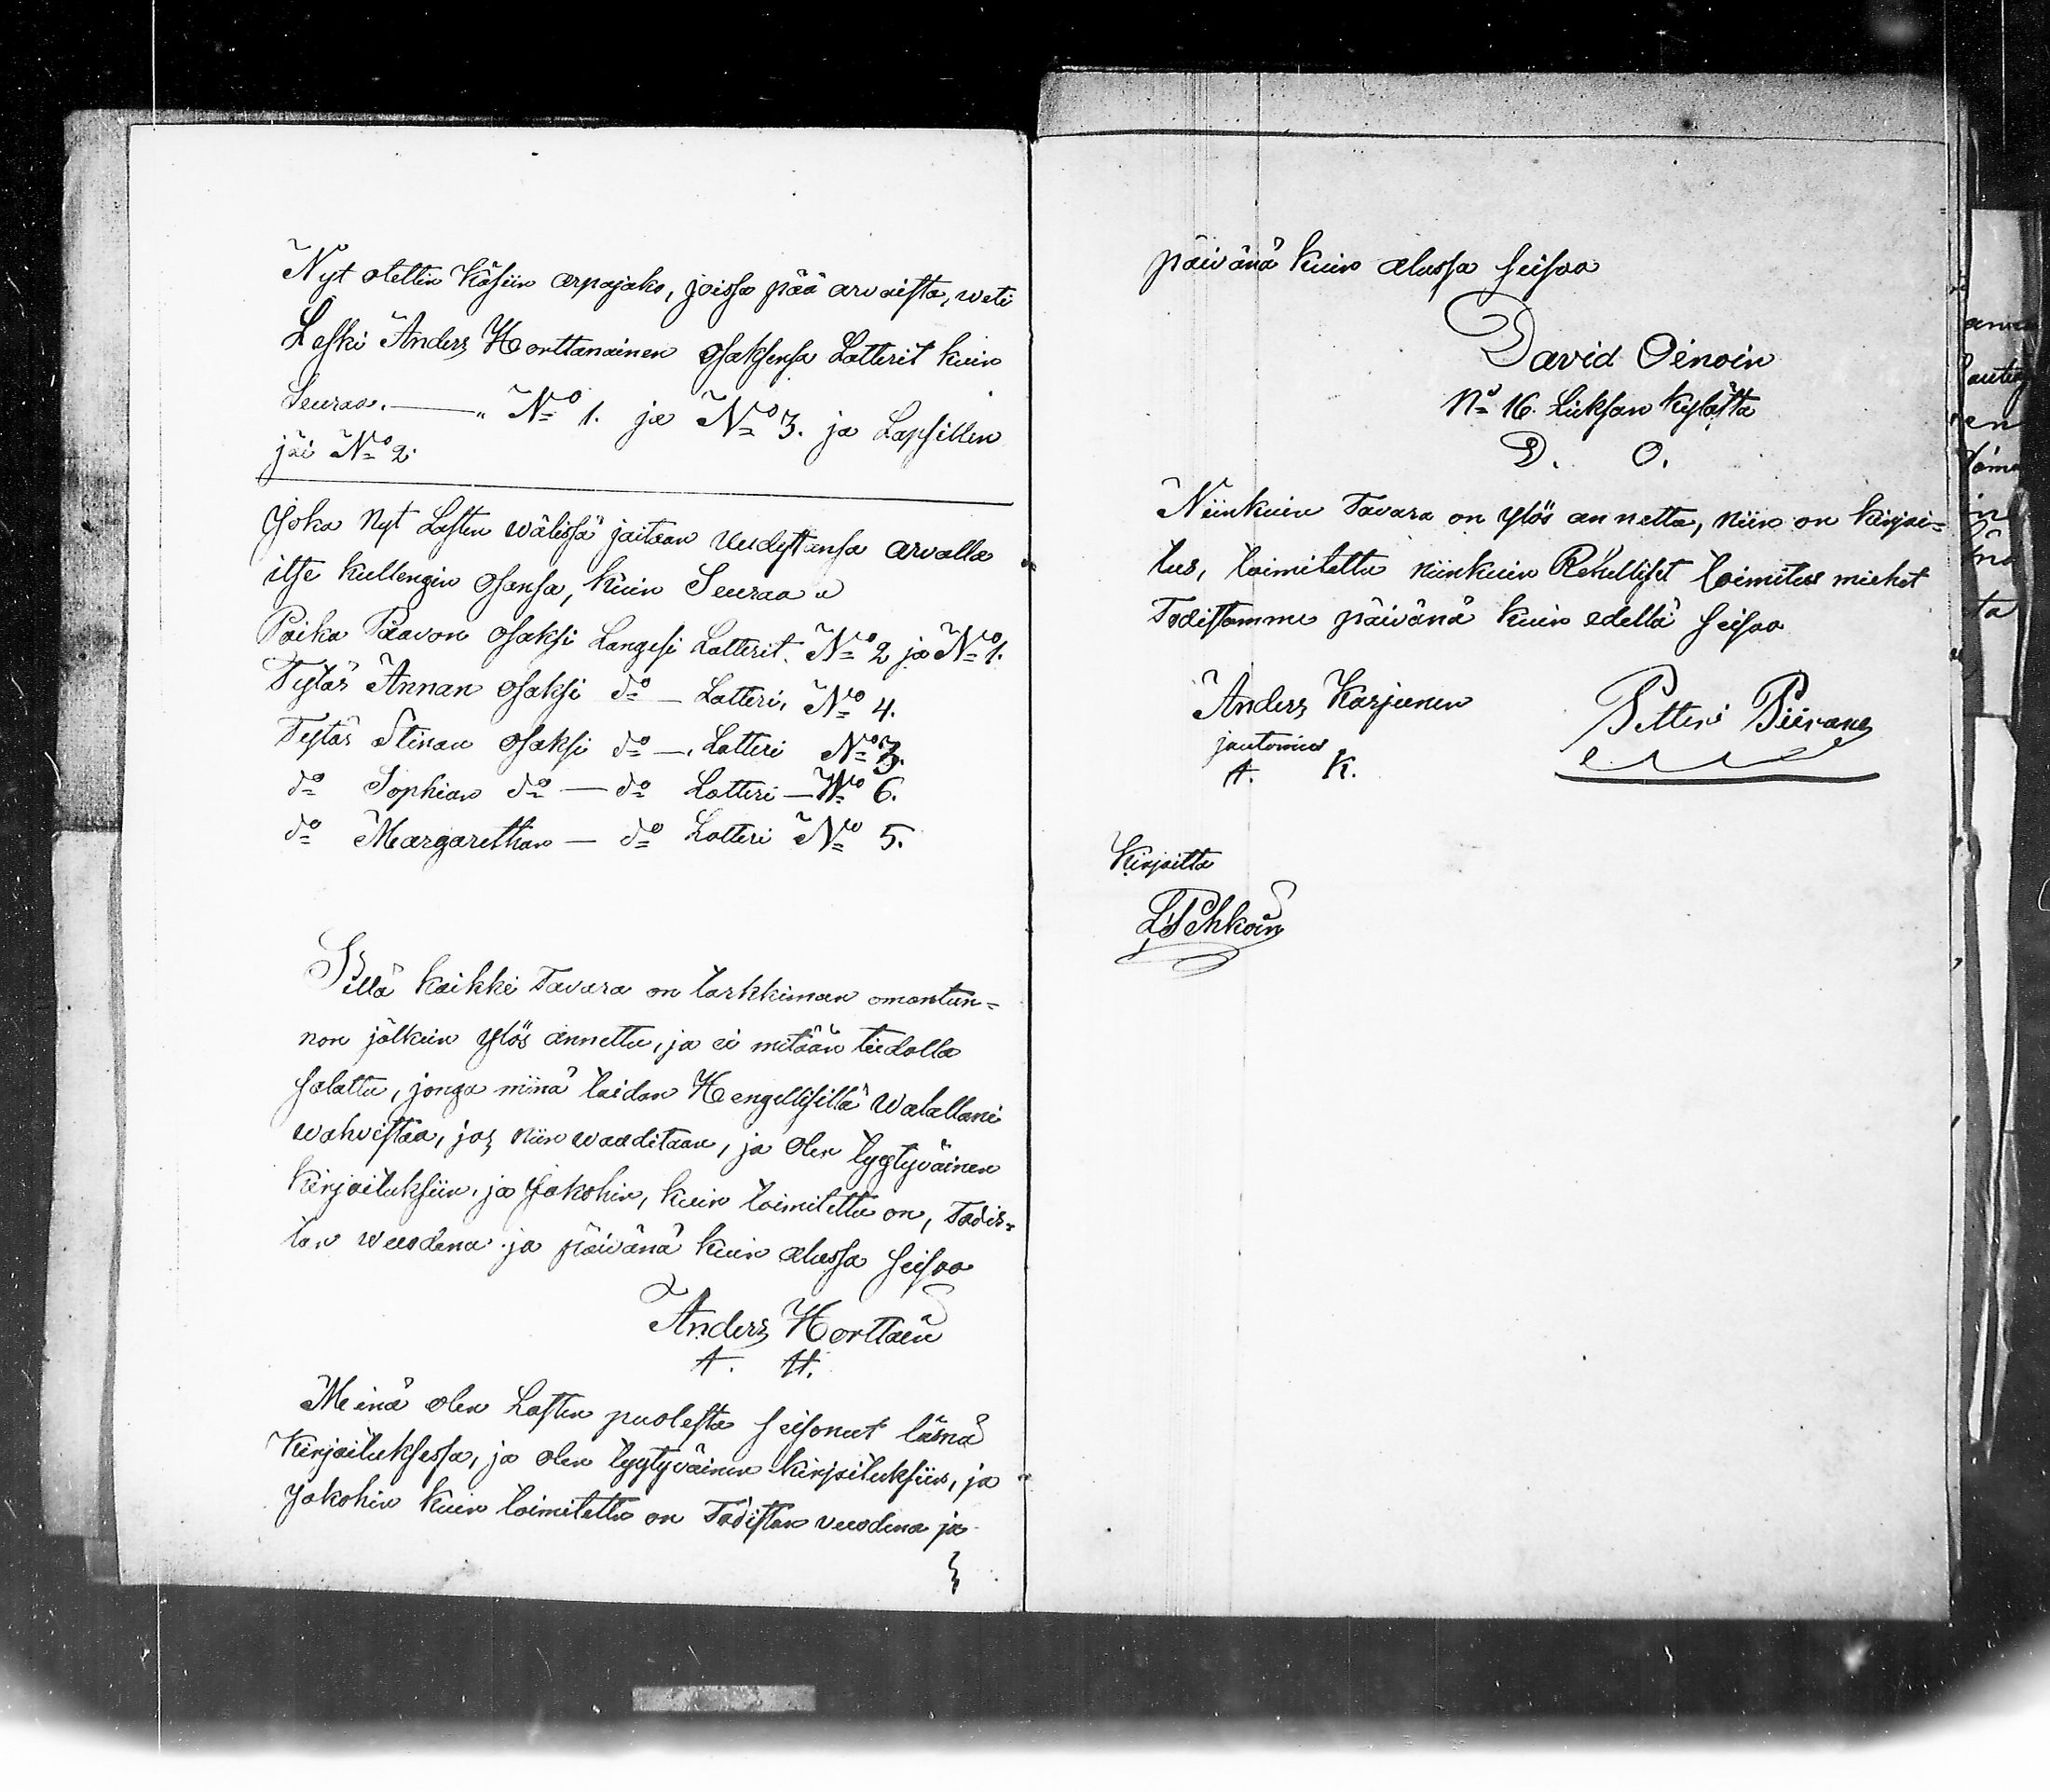 Nyt otettin Käsiin arpajako, joissa pää arvaista, weti
Leski Anders Horttanainen Osaksensa Lotterit kuin
Seuraa. — „ No 1. ja No 3. ja Lapsillen
jäi No 2.
Joka Nyt Lasten wälissä jaitaan Uudestansa arvalla
itse kullengin Osansa, kuin Seuraa „
Poika Paavon Osaksi Langesi Lotterit. No 2 ja No 1.
Tytär Annan Osaksi do — Lotteri, No 4.
Tytär Stinan Osaksi do — Lotteri No 3.
do Sophian do — do Lotteri — No 6.
do Margarethan — do Lotteri No 5.
Sillä kaikki Tavara on tarkkiman omantun=
non jälkein Ylös annettu, ja ei mitään tiedolla
salattu, jonga minä taidan Hengellisillä Walallani
wahvistaa, jos niin waaditaan, ja Olen tyytyväinen
Kirjoituksiin, ja Jakohin, kuin toimitettu on, Todis=
tan wuodena ja päivänä kuin alussa seisoo
Anders Horttain
A. H.
Meinä olen Lasten puolesta seisonut läsnä
Kirjoituksessa, ja olen tyytyväinen kirjoituksiin, ja
Jakohin kuin toimitettu on Todistan vuodena ja
päivänä kuin alussa seisoo
David Oinoin
No 16. Liiksan kylästä
D. O.
Niinkuin Tavara on Ylös annettu, niin on kirjoi=
tus, toimitettu niinkuin Rehelliset toimitus miehet
Todistamme päivänä kuin edellä seisoo
Anders Karjunen
A. K.
Petteri Piirane
Kirjoitta